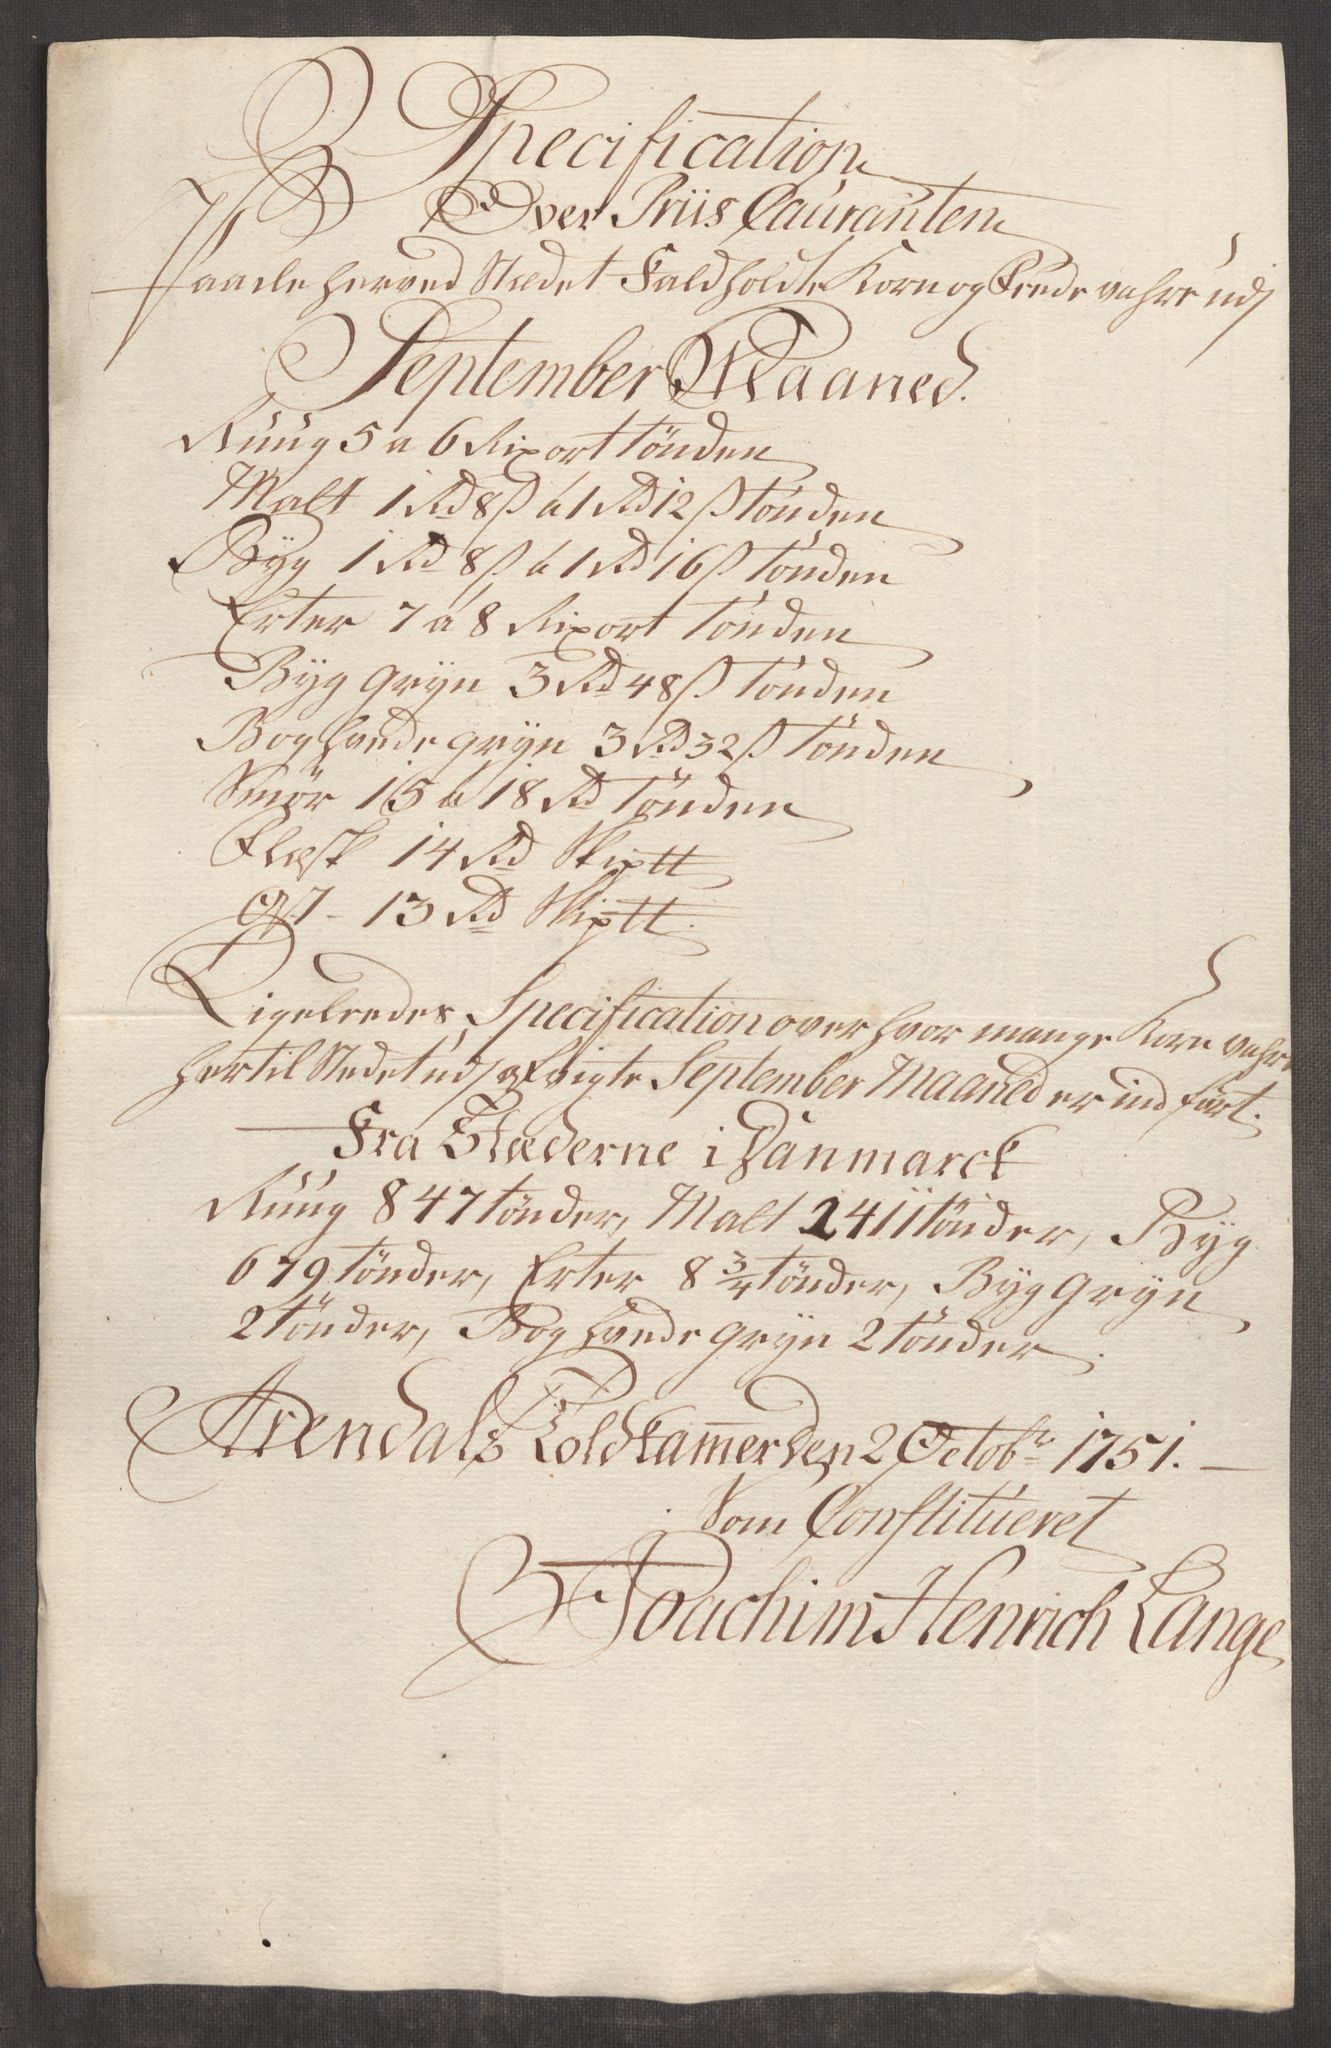 Specification
Over Priis Couranten
Paa de her ved Stædet Faldholdte Korn og Fede vahre udj
September Maaned.
Ruug 5 a 6 Rixort tönden
Malt 1 Rd 8 ß á 1 Rd 12 ß tönden
Byg 1 Rd 8 ß á 1 Rd 16 ß tönden
Erter 7 á 8 Rixort tönden
Byg gryn 3 Rd 48 ß tönden
Boghvede gryn 3 Rd 32 ß tönden
Smör 15 á 18 Rd tönden
Flesk 14 Rd Skiptt
Ost - 13 Rd Skiptt.
Ligeledes Specification over hvor mange Korn vahre
her til Stedet udj afvigte September Maaned er ind fört.
Fra Stæderne i Danmarck
Ruug 847 tönder, Malt 2411 tönder, Byg
679 tönder, Erter 8 3/4 tönder, Byg gryn
2 tönder, Boghvede gryn 2 tönder.
Arendals Toldkammer den 2 Octobr 1751.
Som Constitueret
Joachim Henrich Lange